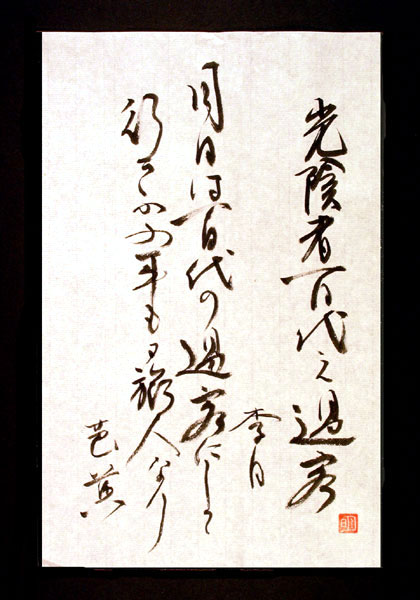 光陰者百代之過客
李白
月日は百代の過客にして
行きかふ年も又旅人なり
芭蕉